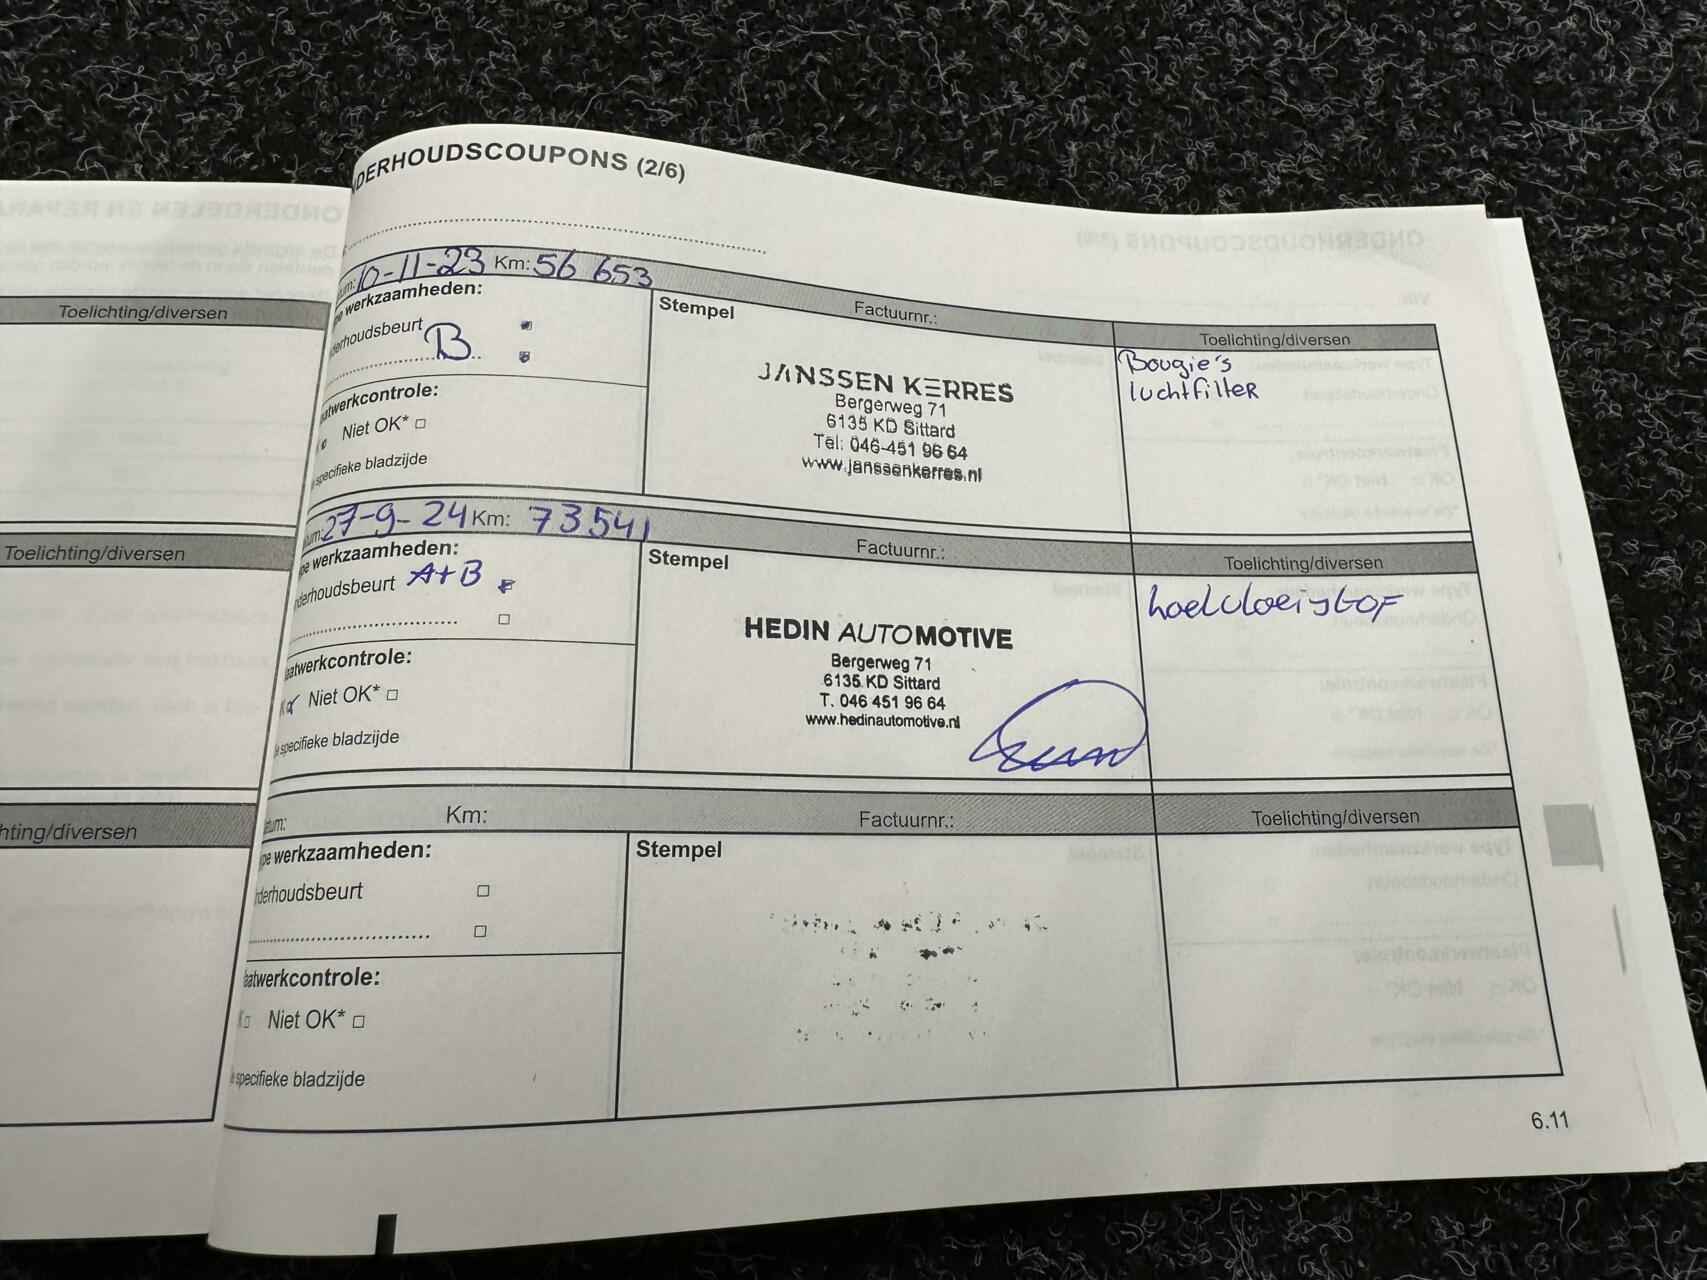 Toelichting/diversen
Toelichting/diversen
hting/diversen
NDERHOUDSCOUPONS (2/6)
tum: 10-11-23 Km: 56 653
Factuurnr.:
Toelichting/diversen
pe werkzaamheden:
derhoudsbeurt
B
Stempel
JANSSEN KERRES
Bergerweg 71
6135 KD Sittard
Tel: 046-451 96 64
www.janssenkerres.nl
Bougie's
luchtfilter
aatwerkcontrole:
Niet OK*
specifieke bladzijde
tum: 27-9-24 Km: 73541
Factuurnr.:
Toelichting/diversen
pe werkzaamheden:
derhoudsbeurt A+B
Stempel
HEDIN AUTOMOTIVE
Bergerweg 71
6135 KD Sittard
T. 046 451 96 64
www.hedinautomotive.nl
koelvloeistof
aatwerkcontrole:
K Niet OK*
specifieke bladzijde
tum: Km:
Factuurnr.:
Toelichting/diversen
pe werkzaamheden:
derhoudsbeurt
Stempel
aatwerkcontrole:
K Niet OK*
specifieke bladzijde
6.11